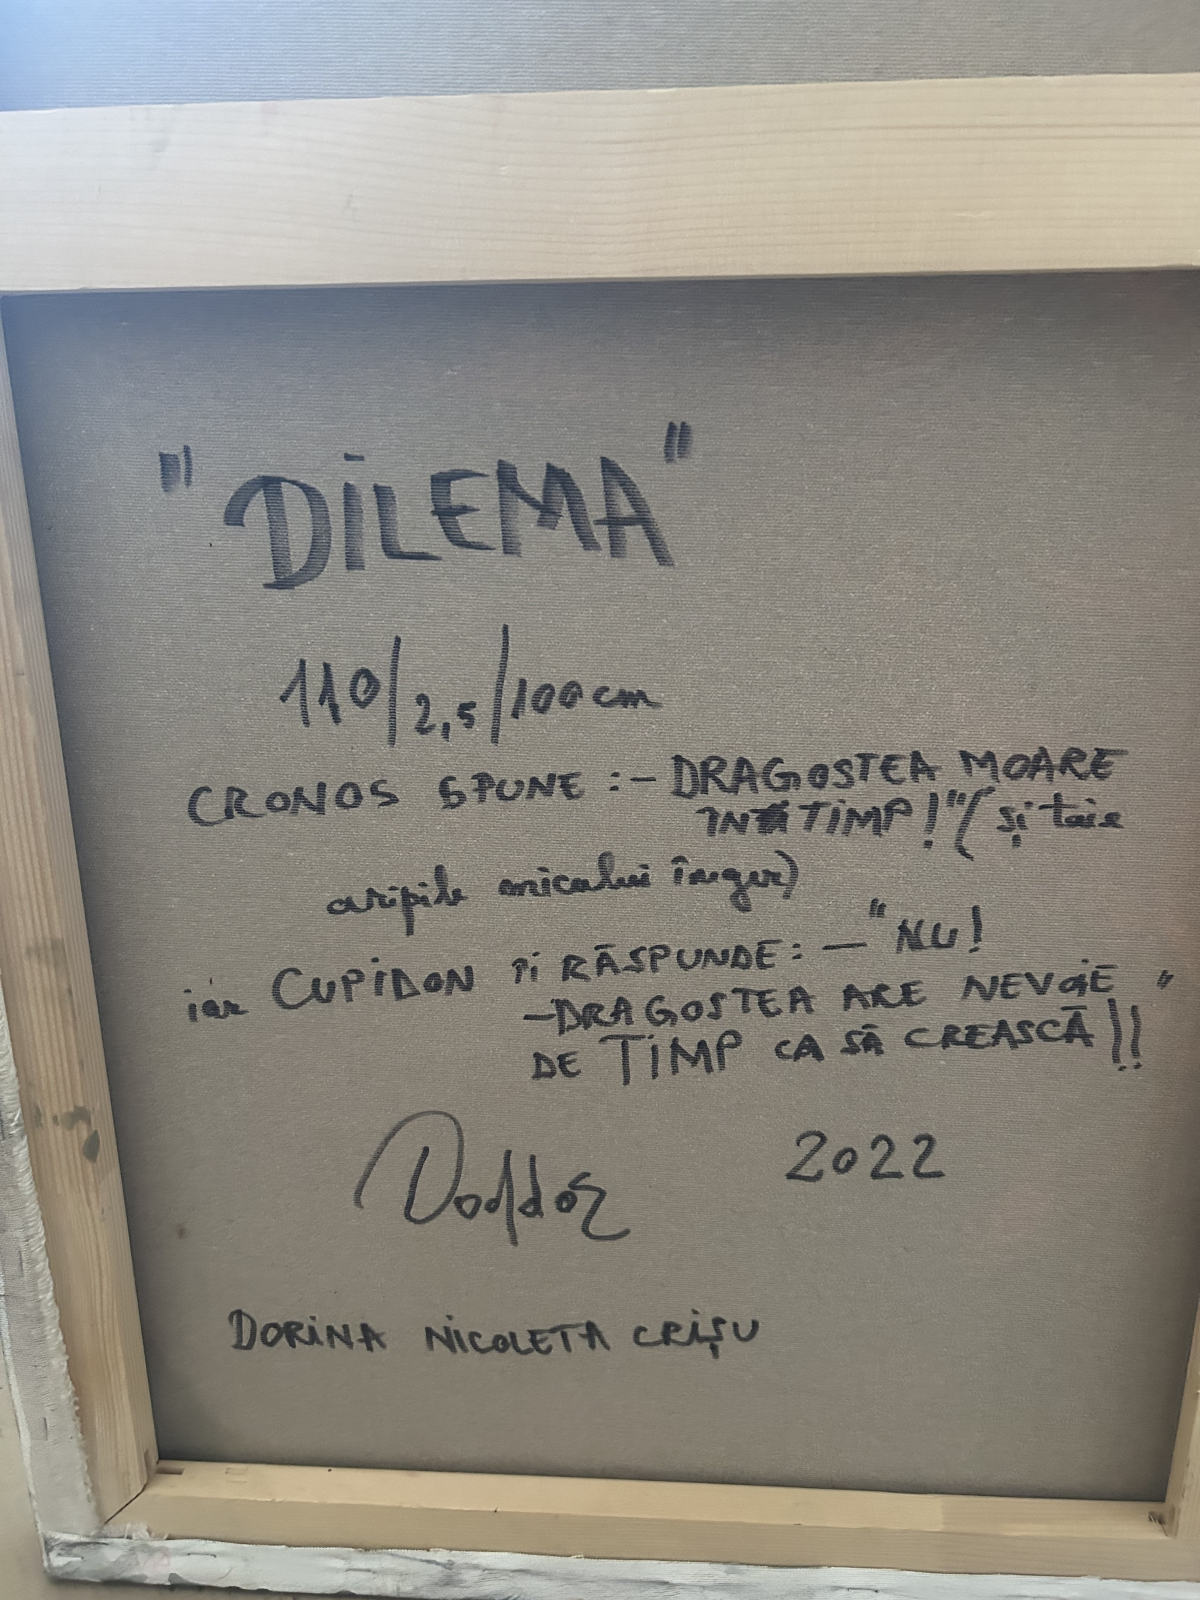 "DILEMA"
110/2,5/100 cm
CRONOS SPUNE :- DRAGOSTEA MOARE
ÎN TIMP!" (și taie
aripile micului înger)
iar CUPIDON ÎI RĂSPUNDE: - "NU!
-DRAGOSTEA ARE NEVOIE "
DE TIMP CA SĂ CREASCĂ!!
2022
DORINA NICOLETA CRIȘU